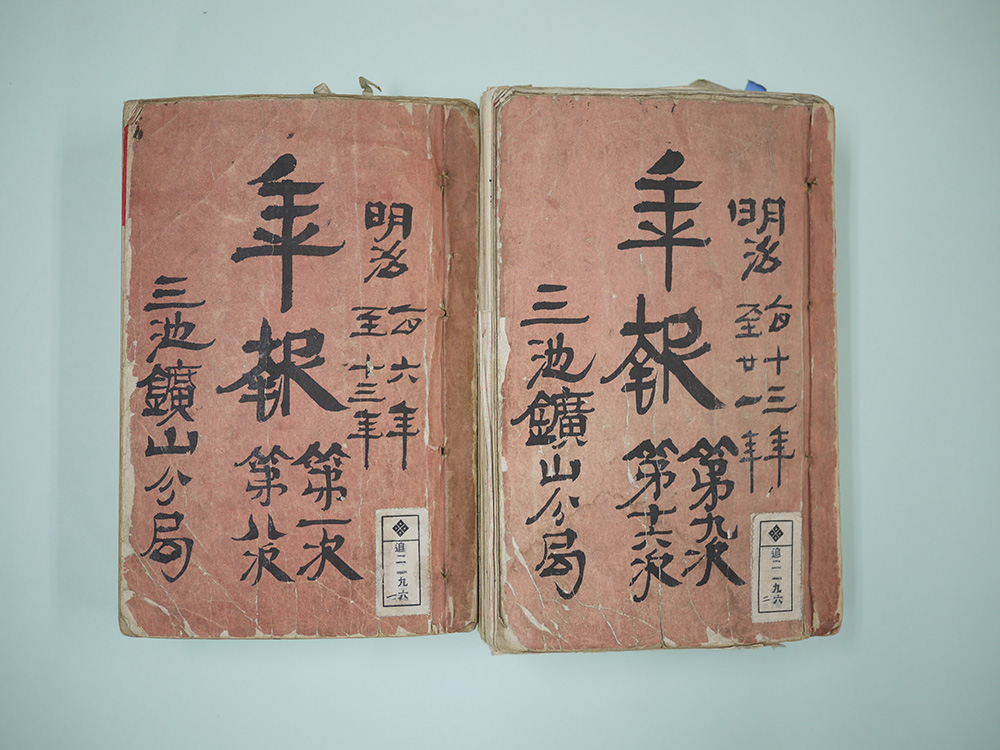 明治
自六年
至十三年
年報
第一次
第八次
三池鑛山分局
追二一九六
一
明治
自十三年
至廿一年
年報
第九次
第十六次
三池鑛山分局
追二一九六
二